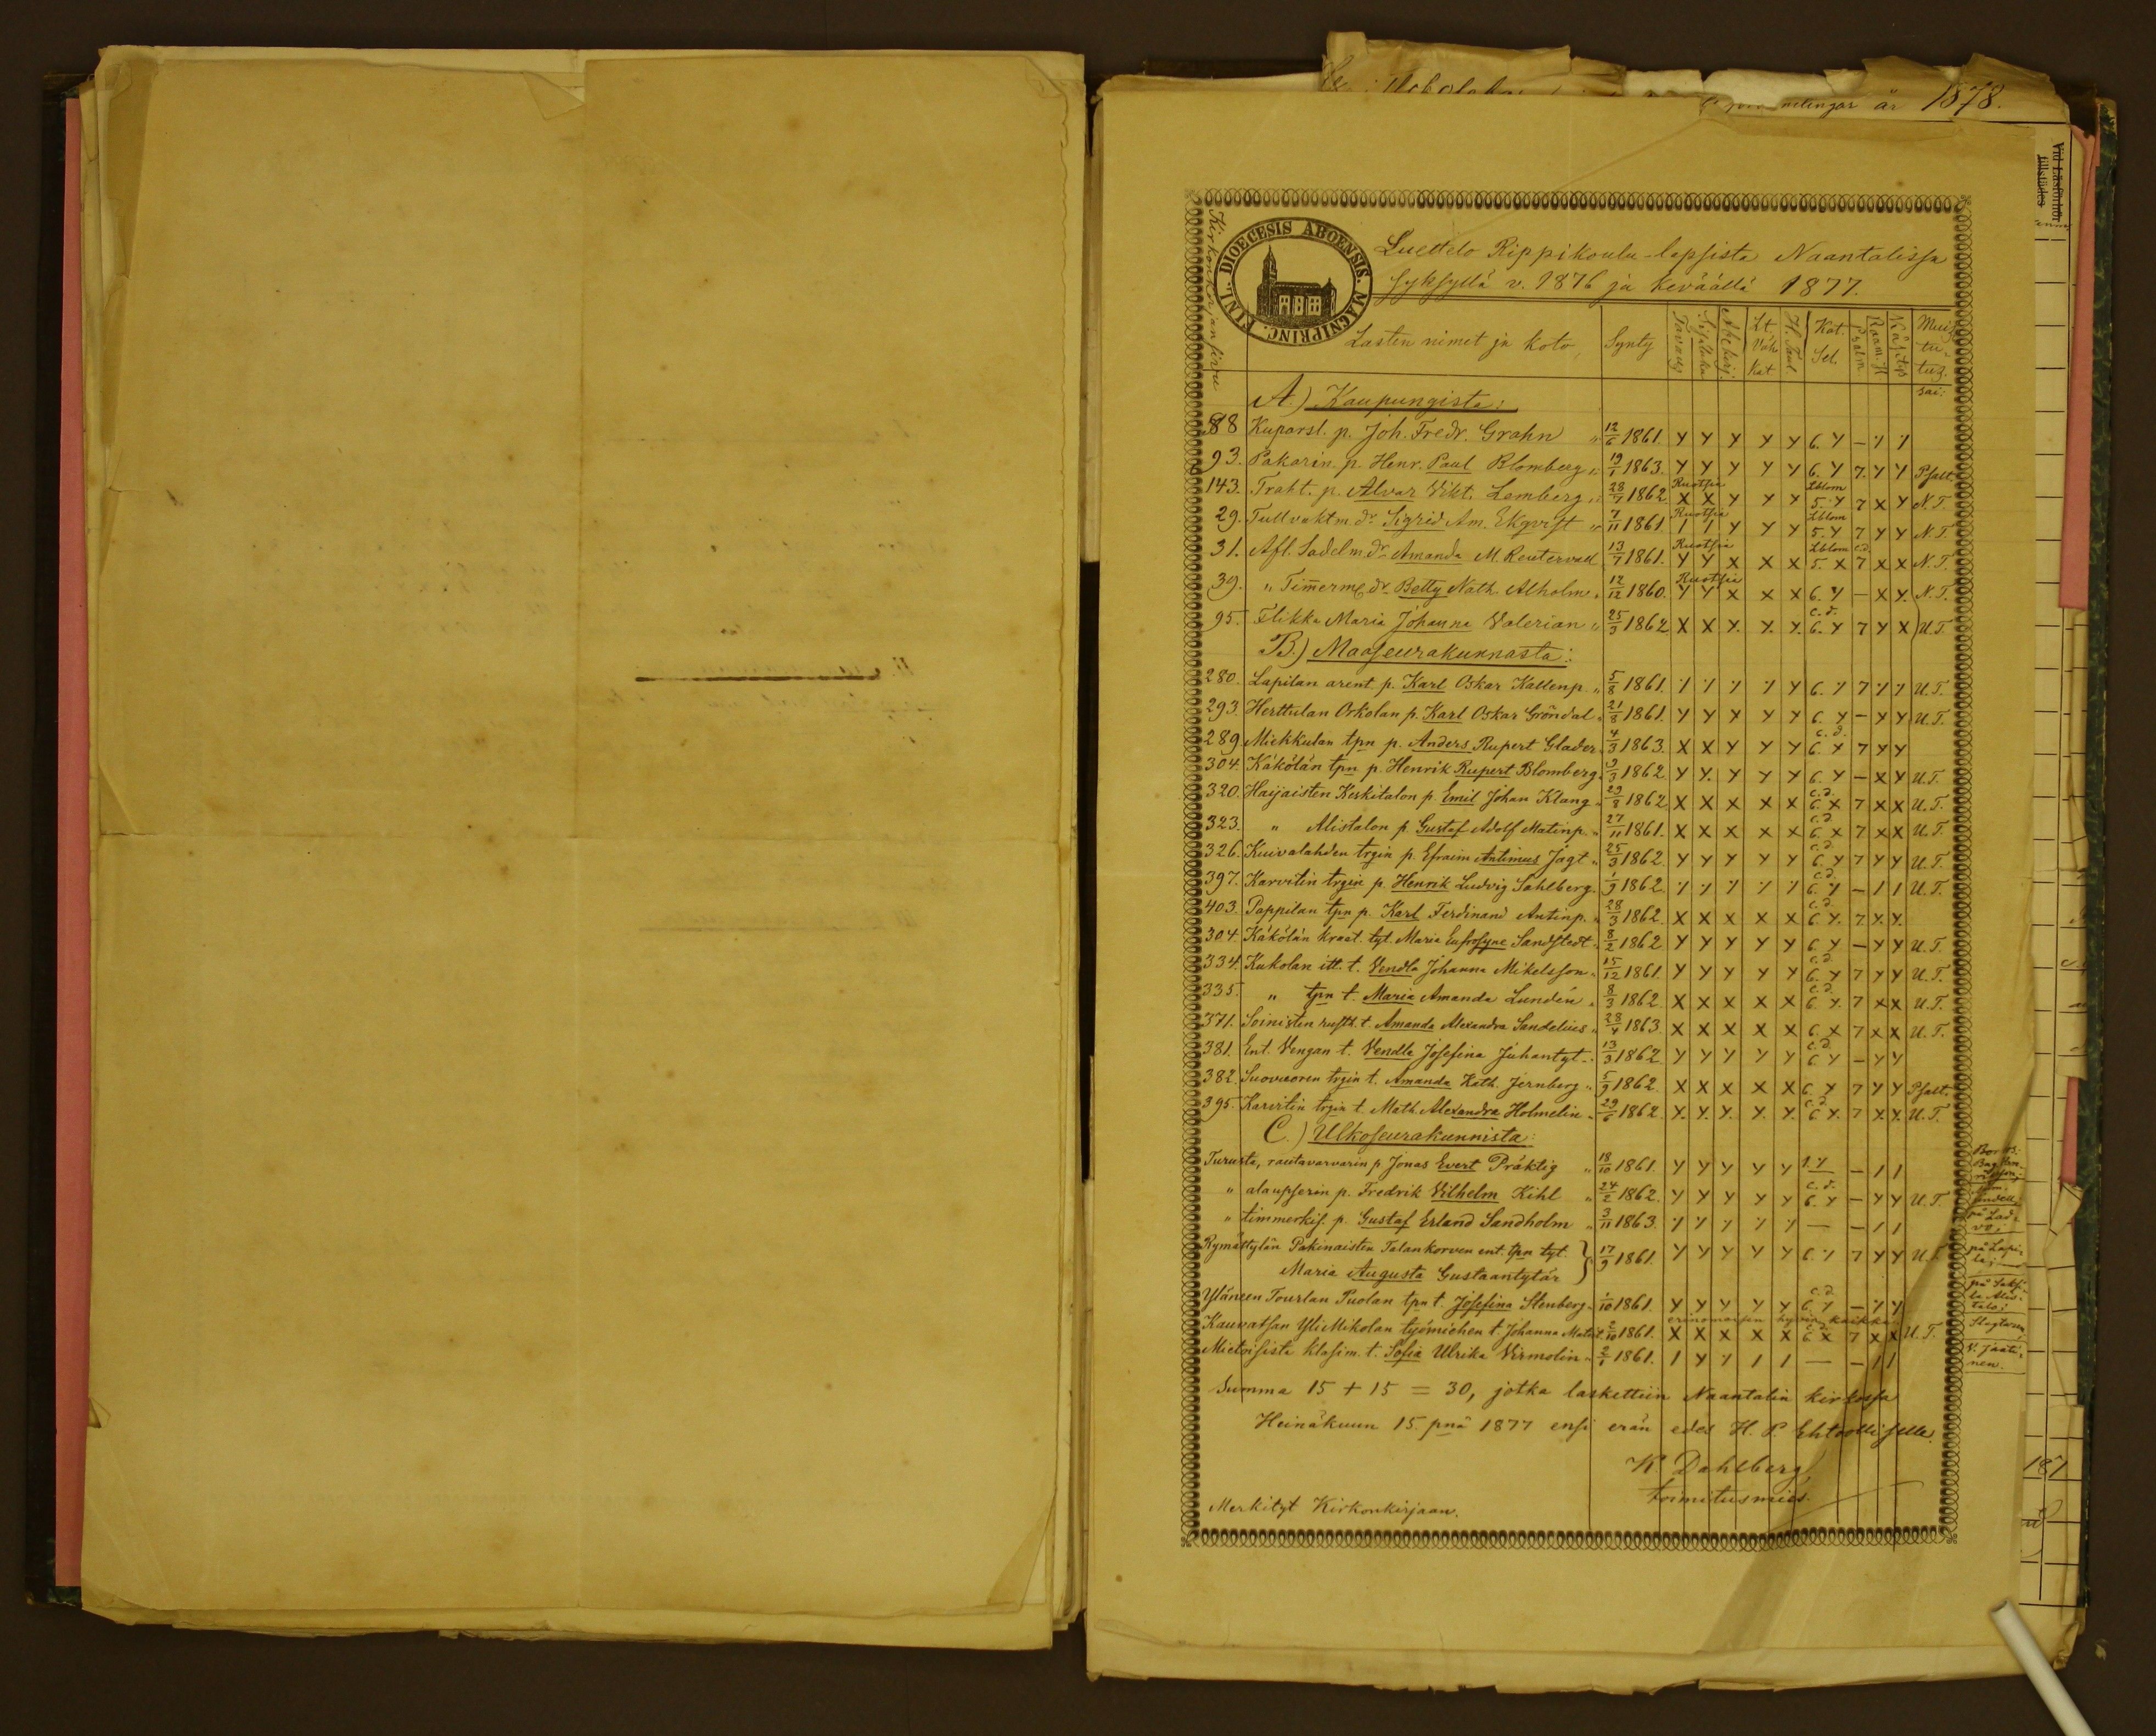 1878.
Vid Läsförhör
tillstädes
DIOECESIS ABOENSIS. MAGNIPRINC. FINL.
Kirkonkirjan sivu
Luettelo Rippikoulu-lapsista Naantalissa
syksyllä v. 1876 ja keväällä 1877.
Lasten nimet ja koto, Synty Tavaus Sisäluku Abckirj. Lt. Väh. Kat H. Taul Kat. Sel. Psalm Raam. H Käsitys Muis-tu-tuz.
sai:
A.) Kaupungista:
88 Kuparsl. p. Joh. Fredr. Grahn " 12/6 1861. Y Y Y Y Y 6. Y – 1 1
93. Pakarin p. Henr. Paul Blomberg " 19/1 1863. Y Y Y Y Y 6. Y 7. Y Y Psalt.
Ruotsia Lblom
143. Trakt. p. Alvar Vikt. Lemberg " 28/7 1862 X X Y Y Y 5. Y 7 X Y N.T.
Ruotsia Lblom
29. Tullvaktm dr Sigrid Am. Ekqvist " 7/11 1861. 1 1 Y Y Y 5. Y 7 Y Y N.T.
Ruotsia Lblom c.d.
31. Afl. Sadelm. dr Amanda M. Reutervad 13/7 1861. Y Y X X X 5. X 7 X X N.T.
Ruotsia
39. " Timmerm. dr Betty Nath. Alholm " 12/12 1860. Y Y X X X 6. Y – X Y. N.T.
c.d.
95. Flikka Maria Johanna Valerian " 25/3 1862 X X Y. Y. Y. 6. Y 7 Y X U.T.
B.) Maaseurakunnasta:
280. Lapilan arent. p. Karl Oskar Kallenp. " 5/8 1861. 1 1 1 1 Y 6. 1 7 1 1 U.T.
293. Herttulan Orkolan p. Karl Oskar Gröndal " 21/8 1861. Y Y Y Y Y 6. Y – Y Y U.T.
c.d.
289. Miekkulan tpn p. Anders Rupert Glader " 4/3 1863. X X Y Y Y 6. Y 7 Y Y
304. Käkölän tpn p. Henrik Rupert Blomberg " 9/3 1862. Y Y. Y Y Y 6. Y – X Y U.T.
c.d.
320. Haijaisten Keskitalon p. Emil Johan Klang " 29/8 1862 X X X X X 6. X 7 X X U.T.
c.d.
323. " Alistalon p. Gustaf Adolf Matinp. " 27/11 1861. X X X X X 6. X 7 X X U.T.
c.d.
326. Kuivalahden trgin p. Efraim Antimus Jagt " 25/3 1862. Y Y Y Y Y 6. Y 7 Y Y U.T.
c.d.
397. Karvitin trgin p. Henrik Ludvig Sahlberg. 1/9 1862. 1 1 1 1 1 6. Y – 1 1 U.T.
c.d.
403. Pappilan tpn p. Karl Ferdinand Antinp. " 28/3 1862. X X X X X 6 Y. 7 X Y.
304. Käkölän kraat. tyt. Maria Eufrosyne Sandstedt. 8/2 1862 Y Y Y Y Y 6. Y – Y Y U.T.
c.d.
334. Kukolan itt. t. Vendla Johanna Mikelsson " 15/12 1861. Y Y Y Y Y 6. Y 7 Y Y U.T.
c.d.
335. " tpn t. Maria Amanda Lundén " 8/3 1862. X X X X X 6 Y. 7 X X U.T.
371. Soinisten rustt. t. Amanda Alexandra Sandelius " 28/4 1863. X X X X X 6. X 7 X X U.T.
c.d.
381. Ent. Vengan t. Vendla Josefina Juhantyt. " 13/3 1862 Y Y Y Y Y 6 Y – Y Y
382. Suovuoren trgin t. Amanda Kath. Jernberg " 5/9 1862. X X X X X 6. Y 7 Y Y Psalt.
c.d.
395. Karvitin trgin t. Math. Alexandra Holmelin " 29/6 1862. Y. Y. Y. Y. Y. 6 Y. 7 X Y. U.T.
C.) Ulkoseurakunnista:
Turusta, rautavarvarin p. Jonas Evert Präktig " 18/10 1861. Y Y Y Y Y 1. Y – 1 1
c.d.
" alaupserin p. Fredrik Vilhelm Kihl " 24/2 1862. Y Y Y Y Y 6. Y – Y Y U.T
" timmerkis. p. Gustaf Erland Sandholm " 3/11 1863. 1 1 1 1 1 — – 1 1
Rymättylän Pakinaisten Talankorven ent. tpn tyt. } 17/9 1861. Y Y Y Y Y 6. 1 7 Y Y U.T.
Maria Augusta Gustaantytär
c.d.
Yläneen Tourlan Puolan tpn t. Josefina Stenberg " 1/10 1861. Y Y Y Y Y 6. Y – 1 Y
erinomaisen hyvin kaikki
Kauvatsan Yli Mikolan työmiehen t. Johanna Matint. 2/10 1861. X X X X X 6 X 7 X X U.T.
Mietoisista klasim. t. Sofia Ulrika Virmolin " 2/1 1861. 1 Y 1 1 1 — – 1 1
på Lapi-
la;
Summa 15 + 15 = 30, jotka laskettiin Naantalin kirkossa
Heinäkuun 15. pnä 1877 ensi erän edes H. P. Ehtoolliselle.
K Dahlberg,
toimitusmies.
Merkityt Kirkonkirjaan.
187